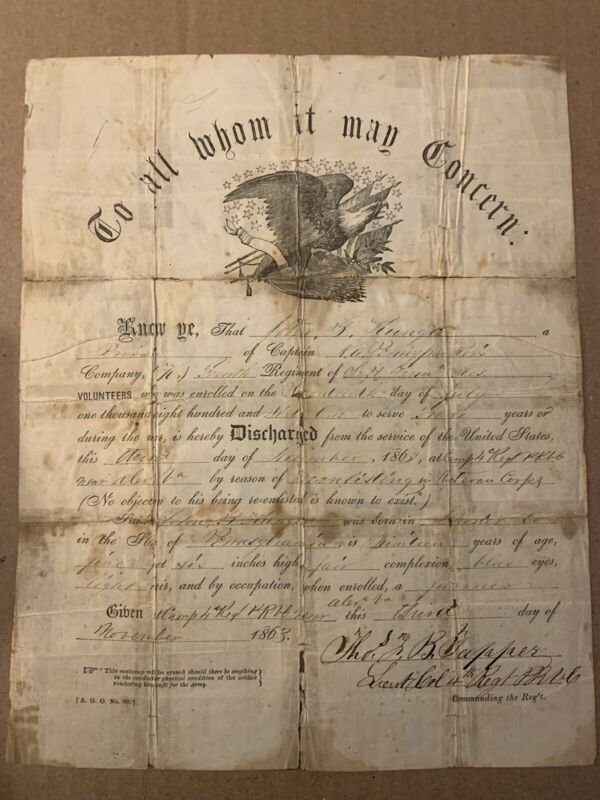 To all whom it may Concern:
Know ye, That John B. a
Private of Captain
Company, (K.) Fourth Regiment of
VOLUNTEERS who was enrolled on the day of July
one thousand eight hundred and to serve Three years or
during the war, is hereby Discharged from the service of the United States,
this Third day of November, 1863, at Camp 4th Regt P R V C
near Alex Va by reason of reenlisting in Veteran Corps
(No objection to his being re-enlisted is known to exist.)
Said John B. was born in Co
in the State of Pennsylvania is years of age,
five feet six inches high, fair complexion, blue eyes,
light hair, and by occupation, when enrolled, a Farmer
Given at Camp 4th Regt P R V C near Alex Va this third day of
November 1863.
Thos. F. B. Tapper
Lieut Col 4th Regt P R V C
Commanding the Reg't.
☞ This sentence will be erased should there be anything
in the conduct or physical condition of the soldier
rendering him unfit for the Army.
[A. G. O. No. 99.]